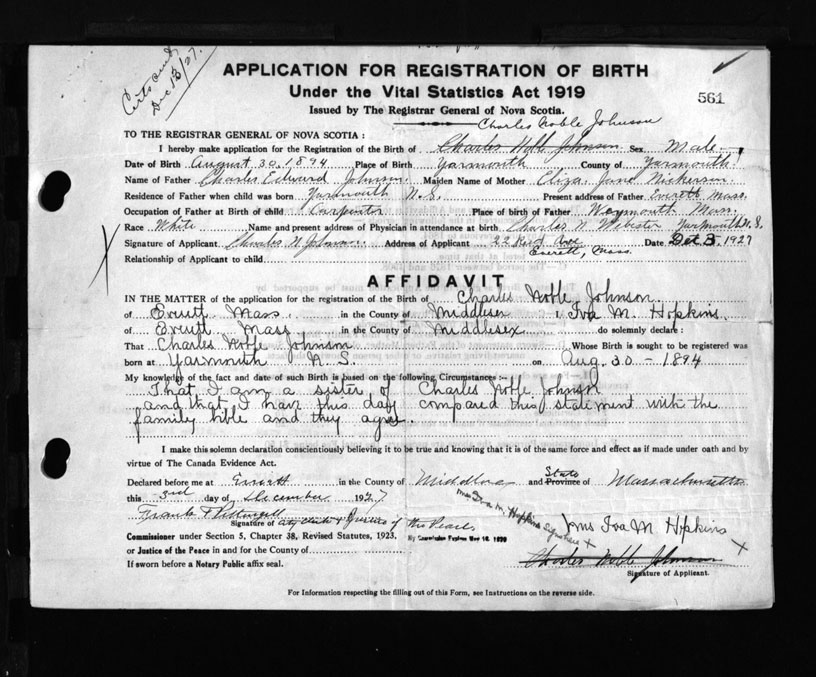 Dec 13/27.
APPLICATION FOR REGISTRATION OF BIRTH
Under the Vital Statistics Act 1919
561
Issued by The Registrar General of Nova Scotia.
Charles Noble Johnson
TO THE REGISTRAR GENERAL OF NOVA SCOTIA :
I hereby make application for the Registration of the Birth of Charles Johnson Sex Male
Date of Birth August 30, 1894 Place of Birth Yarmouth County of Yarmouth
Name of Father Charles Edward Johnson Maiden Name of Mother Eliza Jane Nickerson
Residence of Father when child was born Yarmouth N.S. Present address of Father Everett Mass.
Occupation of Father at Birth of child Carpenter Place of birth of Father Weymouth Mass.
Race White Name and present address of Physician in attendance at birth Charles N. Webster Yarmouth N.S.
Signature of Applicant Charles N Johnson Address of Applicant 22 Reed Ave Date 3, 1927
Everett, Mass.
Relationship of Applicant to child
AFFIDAVIT
IN THE MATTER of the application for the registration of the Birth of Charles Noble Johnson
of Everett Mass in the County of Middlesex I, Iva M. Hopkins
of Everett Mass in the County of Middlesex do solemnly declare :
That Charles Noble Johnson Whose Birth is sought to be registered was
born at Yarmouth N.S. on Aug. 30 - 1894
My knowledge of the fact and date of such Birth is based on the following Circumstances :-
That I am a sister of Charles Noble Johnson
and that I have this day compared this statement with the
family bible and they agree.
I make this solemn declaration conscientiously believing it to be true and knowing that it is of the same force and effect as if made under oath and by
virtue of The Canada Evidence Act.
Declared before me at Everett in the County of Middlesex and State Province of Massachusetts
this 3rd day of December 1927
Mrs Iva M. Hopkins Signature X
Signature of City Clerk & Justice of the Peace
Mrs Iva M Hopkins X
Commissioner under Section 5, Chapter 38, Revised Statutes, 1923,
My Commission Expires
or Justice of the Peace in and for the County of
Charles Noble Johnson
If sworn before a Notary Public affix seal.
Signature of Applicant.
For Information respecting the filling out of this Form, see Instructions on the reverse side.